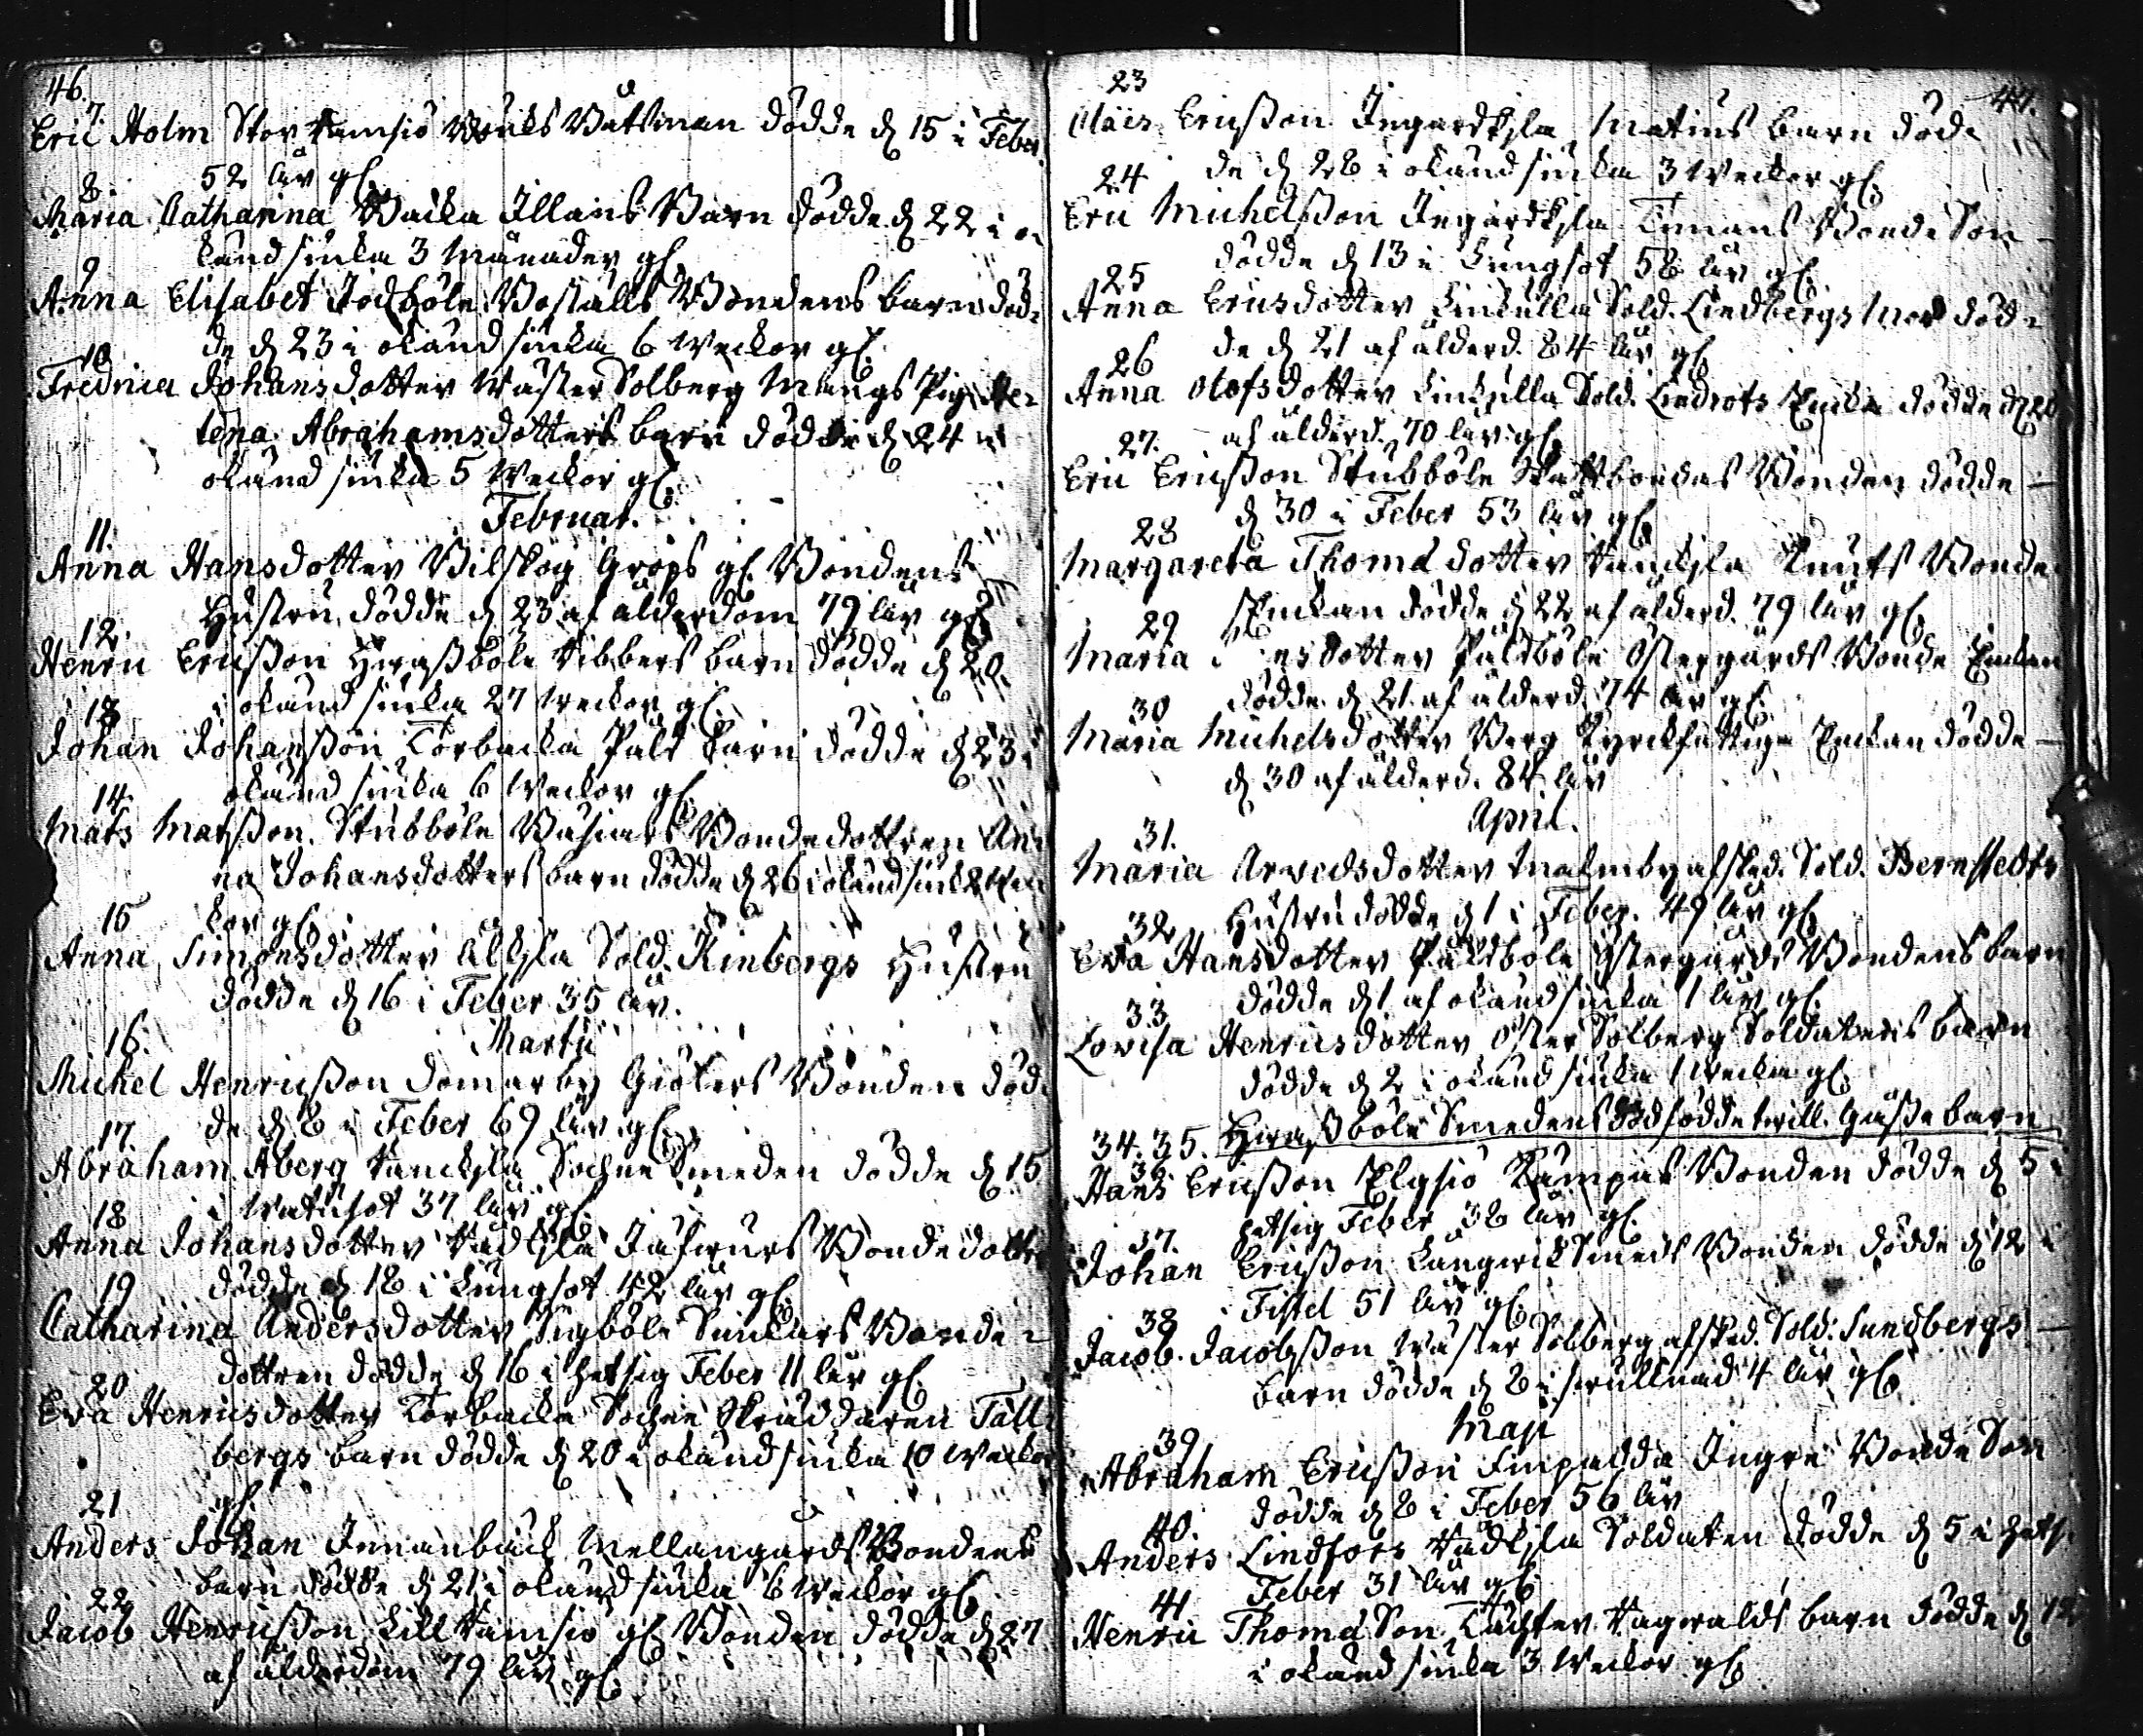 46.
7
Eric Holm Stor Ramsiö Bruks Vattman dödde d. 15 i Feber
52 åhr gl.
8.
Maria Catharina Backa Illans Barn dödde d. 22 i o-
känd siuka 3 Månader gl.
9
Anna Elisabet Jodböle Boställs Bondens barn död-
de d. 23 i okänd siuka 6 weckor gl.
10
Fredrica Johansdotter Wäster Solberg Mangs Pig. He-
lena Abrahamsdotters barn dödde d. 24 i
okänd siuka 5 weckor gl.
Februar.
11.
Anna Hansdotter Bilskog Grops gl. Bondens
Hustru dödde d. 23 af ålderdom 79 åhr gl.
12.
Henric Ericsson Hirassböle Ribbers barn dödde d. 20
i okänd siuka 27 weckor gl.
13
Johan Johansson Torbacka Pald barn dödde d. 23 i
okänd siuka 6 weckor gl.
14.
Mats Matsson Stubböle Busiars Bonde dottren An-
na Johansdotters barn dödde d. 26 i okänd siuk. 2 wec-
kor gl.
15
Anna Simonsdotter Åkkyla Sold. Kinbergs Hustru
dödde d. 16 i Feber 35 åhr.
Martii
16.
Michel Henricsson Domarby Giökers Bonden död-
de d. 8 i Feber 69 åhr gl.
17.
Abraham Åberg Vanckyla Sockne Smeden dödde d. 15
i Watusot 37 åhr gl.
18
Anna Johansdotter Vädkyla Bonde dottr
dödde d. 18 i Lungsot 42 åhr gl.
19
Catharina Andersdotter Sigböle Sunkars Bonde-
dottren dödde d. 16 i hetsig Feber 11 åhr gl.
20
Eva Henricsdotter Torbacka Sockne Skräddaren Täll-
bergs barn dödde d. 20 i okänd siuka 10 weckor
gl.
21
Anders Johan Innanbäck Mellangårds Bondens
barn dödde d. 21 i okänd siuka 6 weckor gl.
22
Jacob Henricsson Lill Ramsiö gl. Bonden dödde d. 27
af ålderdom 79 åhr gl.
47.
23
Claës Ericsson Ingardskyla Matius barn död-
de d. 28 i okänd siuka 3 weckor gl.
24
Eric Michelsson Ingardskyla Timans Bonde Son
dödde d. 13 i Lungsot 58 åhr gl.
25
Anna Ericsdotter Linkulla Sold. Lindbergs Mor död-
de d. 21 af ålderd. 84 åhr gl.
26
Anna Olofsdotter Linkulla Sold. Lindrots Enka dödde d. 20
af ålderd. 70 åhr gl.
27.
Eric Ericsson Stubböle Bonden dödde
d. 30 i Feber 53 åhr gl.
28
Margareta Thomadotter Vanckyla Knuts Bonde
Enckan dödde d. 22 af ålderd. 79 åhr gl.
29
Maria dotter Påldböle Östergårds Bonde Enkan
dödde d. 21 af ålderd. 74 åhr gl.
30
Maria Michelsdotter Berg Kyrckfattige Enckan dödde
d. 30 af ålderd. 84 åhr
April.
31.
Maria Arvedsdotter Malmby afsked. Sold. Bernstedts
Hustru dödde d. 1 i Feber. 49 åhr gl.
32
Eva Hansdotter Påldböle Östergårds Bondens barn
dödde d. 1 af okänd siuka 1 åhr gl.
33
Lovisa Henricsdotter Öster Solberg Soldatens barn
dödde d. 2 i okänd siuka 1 wecka gl.
34. 35. Hirassböle Smedens dödfödde twill. Gåsse barn
36
Hans Ericsson Elgsiö Kämpas Bonden dödde d. 5 i
hetsig Feber 38 åhr gl.
37.
Johan Ericsson Långwik Smeds Bonden dödde d. 12 i
Fistel 51 åhr gl.
38
Jacob Jacobsson Wäster Solberg afsked. Sold. Sundbergs
barn dödde d. 8 i swullnad 4 åhr gl.
Maji
39
Abraham Ericsson Finpadda Ingre Bonde Son
dödde d. 8 i Feber 56 åhr
40.
Anders Lindfors Vädkyla Soldaten dödde d. 5 i hets.
Feber 31 åhr gl.
41
Henric Thomason Täckter Ragwalds barn dödde d. 12
i okänd siuka 3 weckor gl.